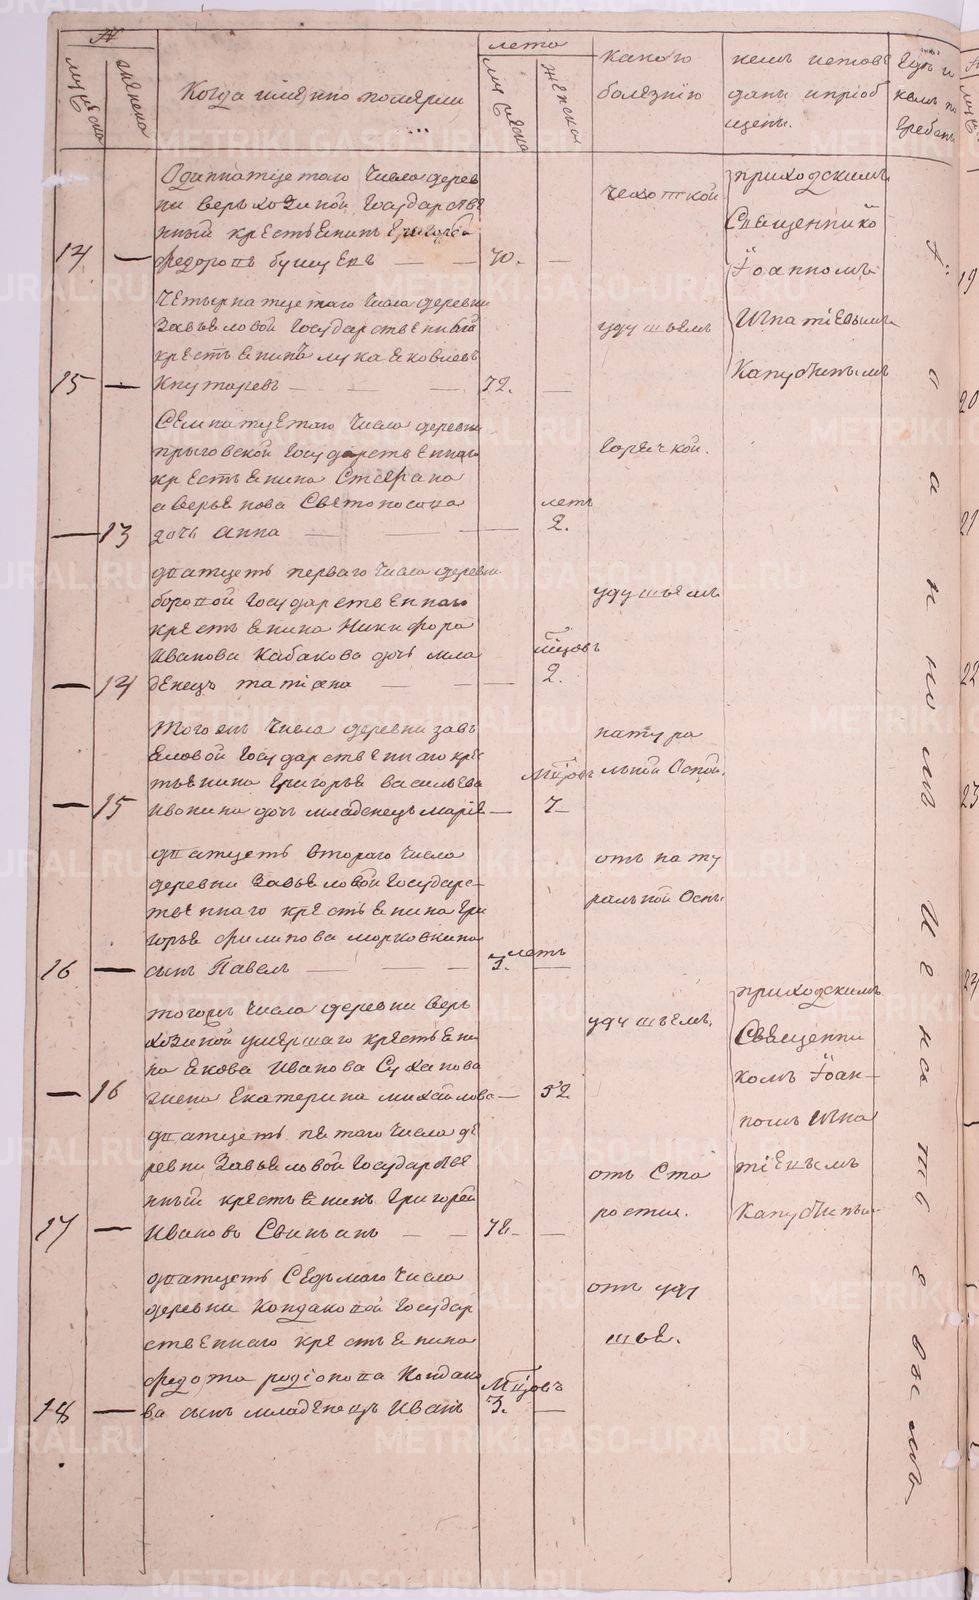 №
мужеска
женска
Когда имянно померли
лета
мужеска
женска
какою
болезнию
кемъ исповѣ
даны и приоб
щены.
кемъ по
гребены
Одиннатцетаго числа дерев
ни Верьхозиной Государстве
нный крестьенинъ Григорей
14 — Федоровъ бушуевъ — — 70. —
чехоткой
приходскимъ
Священнико
Іоанномъ
Игнатіевымъ
Капустинымъ
Четырнатцетаго числа деревни
Завьеловой Государственный
крестьенинъ лука яковлевъ
15 — Кнутаревъ — — 72. —
удушьемъ
Семнатцетаго числа деревни
прыговской Государственнаго
крестьенина Стефана
аверьенова Светоносова
— 13 дочь анна — — —
летъ
2.
горячкой.
дватцеть перваго числа деревни
боровой Государственнаго
крестьенина Никифора
Иванова Кабакова дочь мла
— 14 денецъ татіяна — — —
мѣцовъ
2.
удушьемъ
Того жъ числа деревни завь
еловой Государственнаго кре
тьенина Григорья васильева
— 15 Ивонина дочь младенецъ марія —
мѣцовъ
7
натура
льной Оспой.
дватцеть втораго числа
деревни Завьеловой Государс
твеннаго крестьенина Гри
горья филипова морковкина
16 — сынъ Павелъ — — — 3. летъ —
отъ нату
ральной Оспы
тогожъ числа деревни Верь
хозиной умершаго крестьени
на Якова Иванова Суханова
— 16 жена Екатерина михайлова — 52
удушьемъ.
приходскимъ
Священни
комъ Іоан
номъ Игна
тіевымъ
Капустины
дватцеть пятаго числа де
ревни Завьеловой Государстве
нный крестьенинъ Григорей
17 — Ивановъ Свиньинъ — — 78. —
отъ Ста
рости.
дватцеть Седьмого числа
деревни Кондаковой Государ
ственнаго крестьенина
федота родіонова Кондако
18 — ва сынъ младенецъ Иванъ
мѣцовъ
3. —
отъ уду
шья.